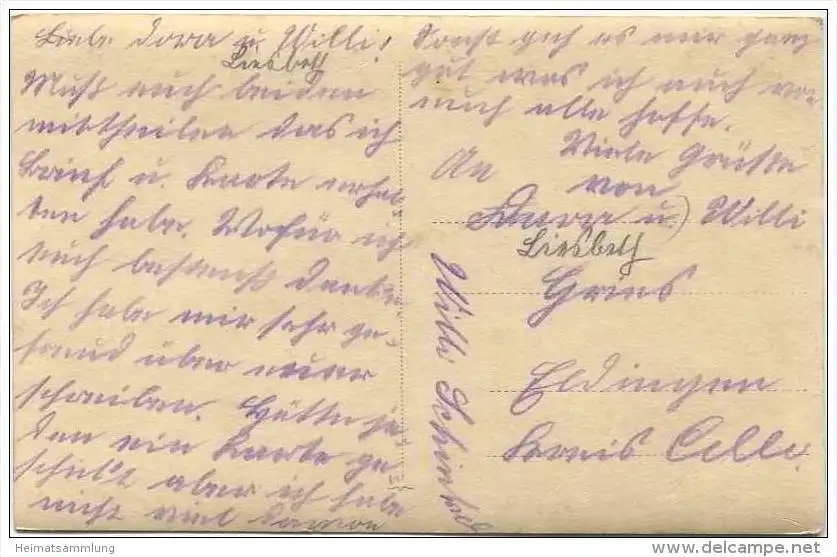 Liebe Dora u. Willi!
Liesbeth
Muß euch beiden
mittheilen das ich
Brief u. Karte erhal-
ten habe. Wofür ich
euch bestens danke.
Ich habe mir sehr ge-
freud über euer
schreiben. Hätte je-
den ein Karte ge-
schikt aber ich habe
nicht viel davon
Sonst geh es mir ganz
gut was ich auch von
euch alle hoffe.
Viele Grüße
von
Willi
An
Dora u. Willi
Liesbeth
Gries
Eldingen
Kreis Celle.
Heimatsammlung
delcampe.net